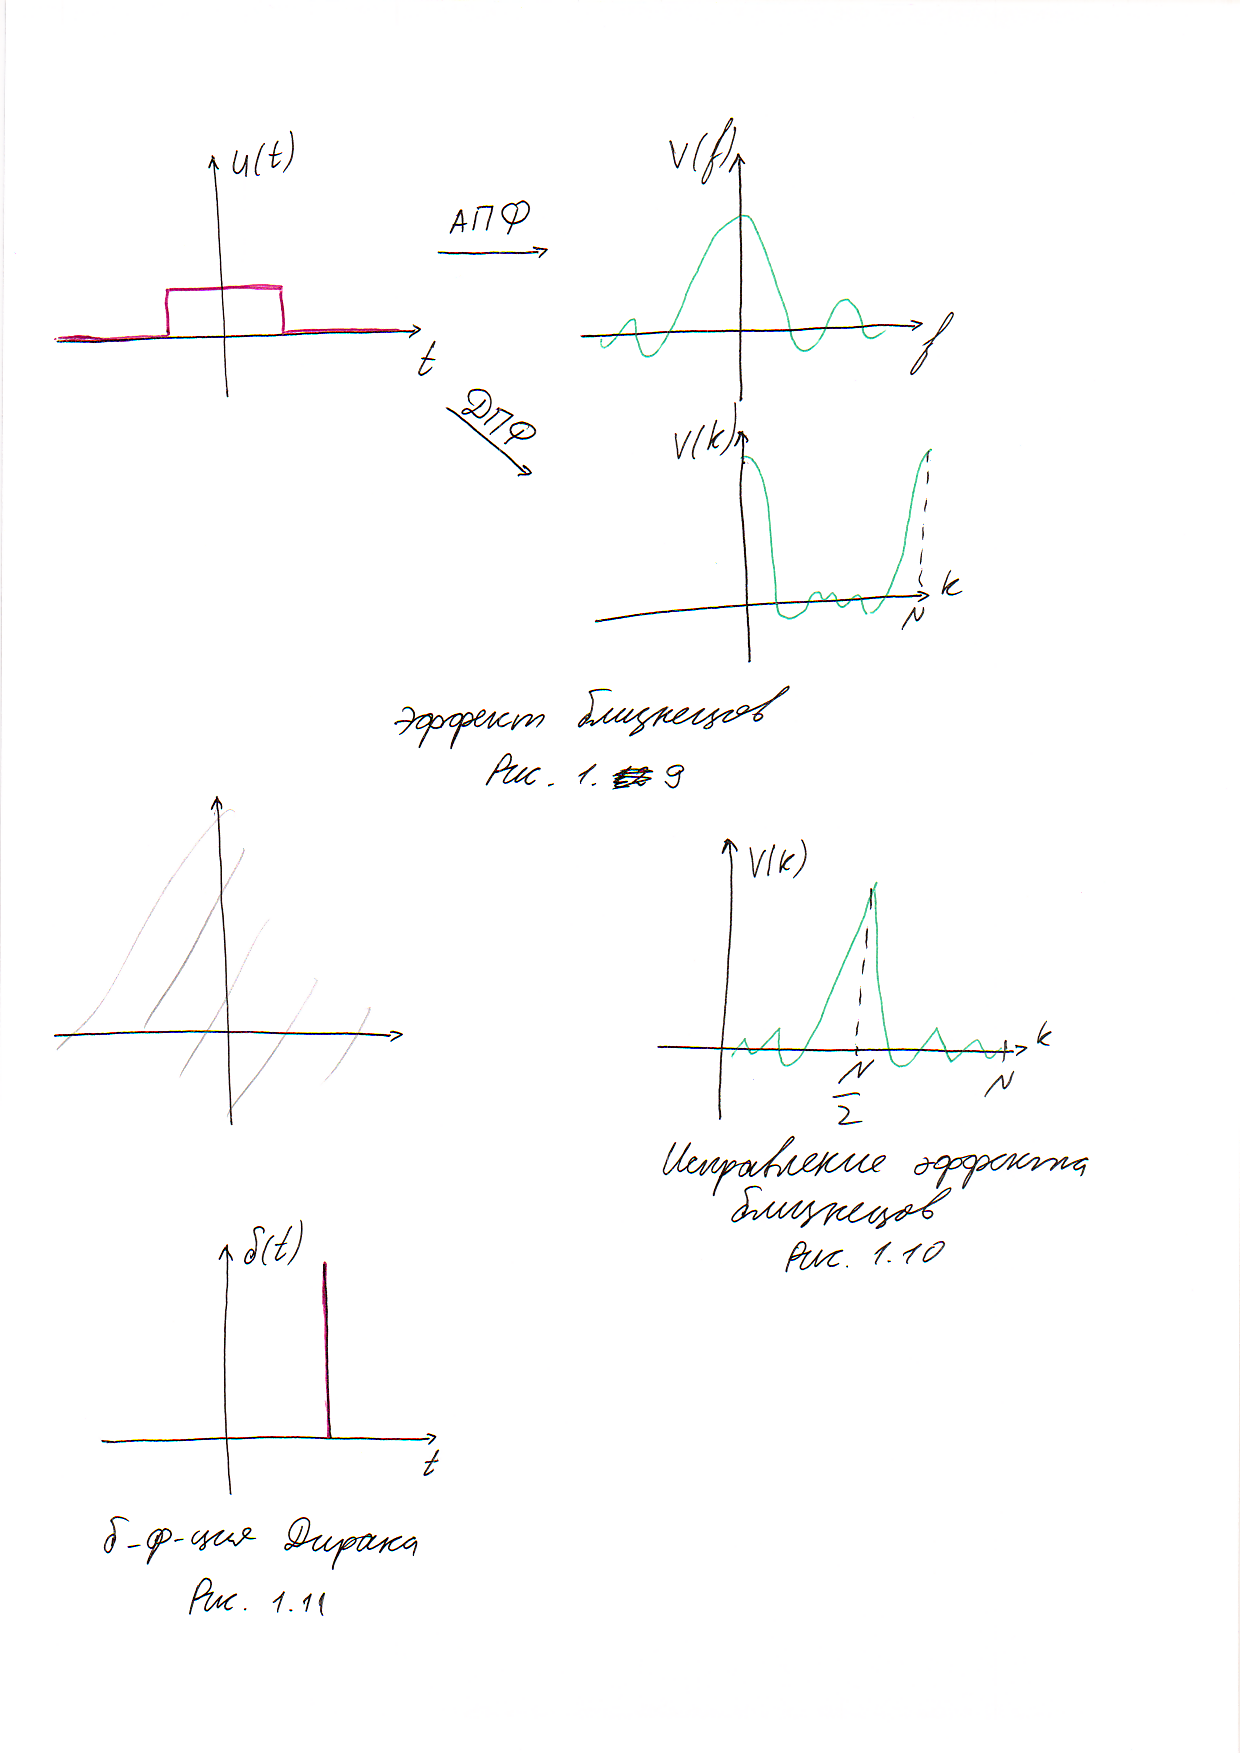 u(t)
АПФ
V(f)
f
t
ДПФ
V(k)
k
N
эффект близнецов
Рис. 1. 9
V(k)
k
N
2
N
Исправление эффекта
близнецов
Рис. 1.10
δ(t)
t
δ-ф-ция Дирака
Рис. 1.11